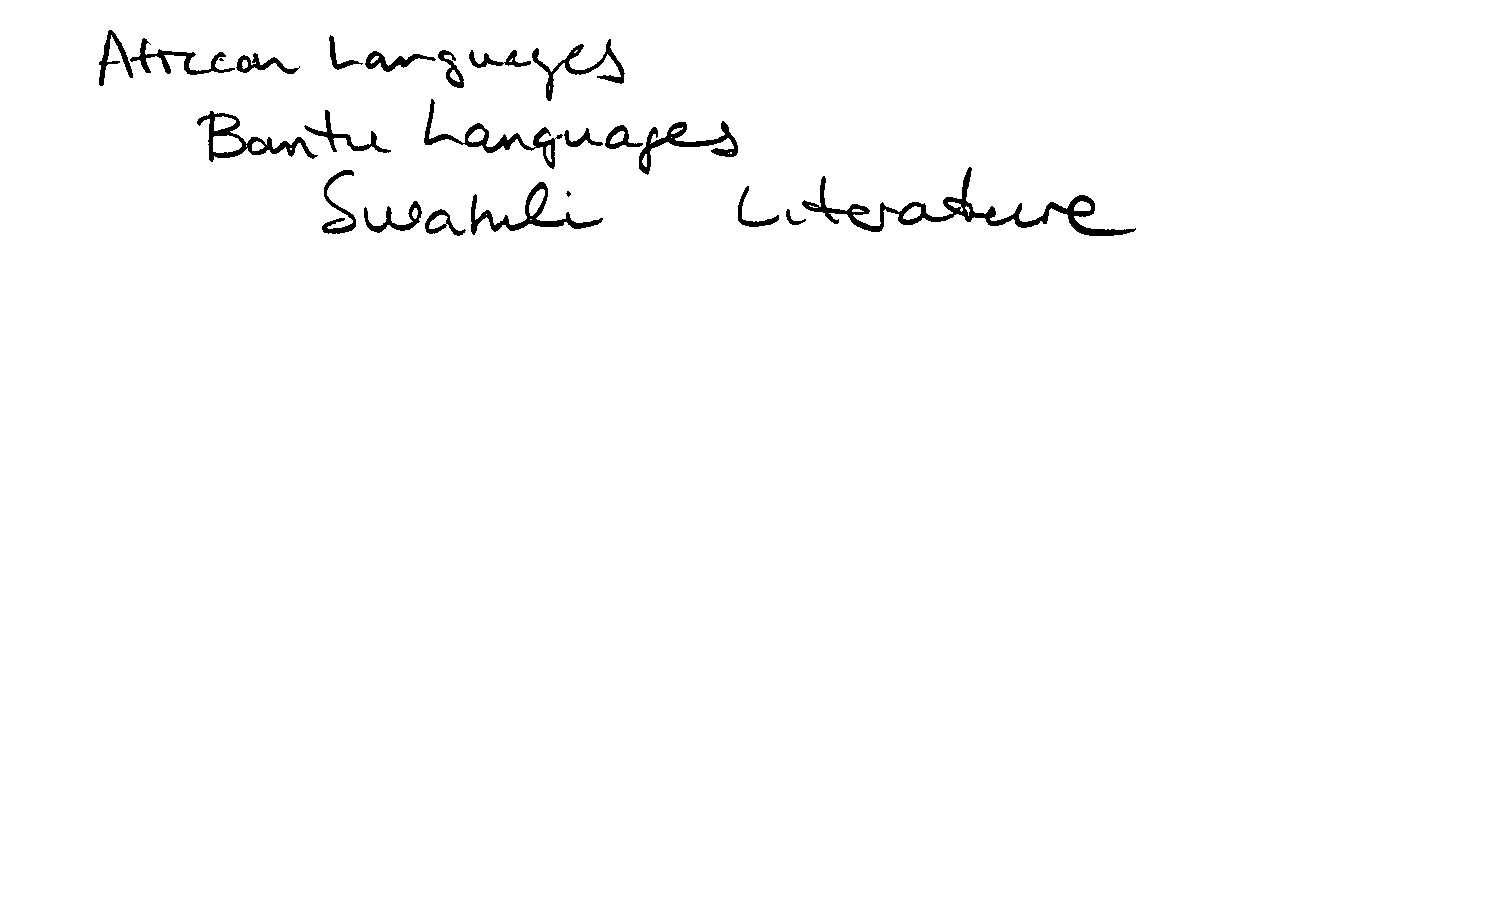 African Languages
Bantu Languages
Swahili Literature